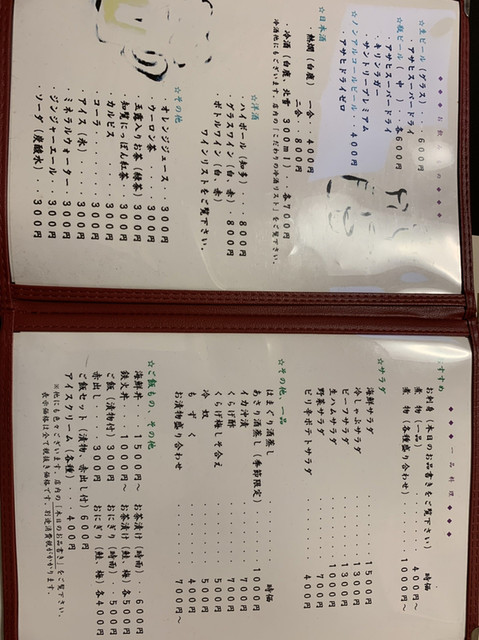 ◆◆◆お飲みもの◆◆◆
☆生ビール(グラス)・・・600円
・アサヒスーパードライ
☆瓶ビール(中)・・各600円
・アサヒスーパードライ
・キリンラガー
・サントリープレミアム
☆ノンアルコールビール・・400円
・アサヒドライゼロ
☆日本酒
・熱燗(白鹿) 一合・400円
二合・800円
・冷酒(白鹿、北雪 300ml)・各700円
冷酒他にもございます。店内の「こだわりの冷酒リスト」をご覧下さい。
☆洋酒
・ハイボール(知多)・・・800円
・グラスワイン(白、赤)・800円
・ボトルワイン(白、赤)
ワインリストをご覧下さい。
☆その他
・オレンジジュース・・・300円
・ウーロン茶・・・300円
・玉露入りお茶(緑茶)・・300円
・知覧にっぽん紅茶・・・300円
・カルピス・・・300円
・コーラ・・・300円
・アイス(氷)・・・300円
・ミネラルウォーター・・・300円
・ジンジャーエール・・・300円
・ソーダ(炭酸水)・・・300円
◆◆◆一品料理◆◆◆
すすめ
お刺身(本日のお品書きをご覧下さい) 時価
煮物(一品)・・・400円～
煮物(各種盛り合わせ)・・・1000円～
☆サラダ
海鮮サラダ・・・1500円
冷しゃぶサラダ・・・1300円
ビーフサラダ・・・1300円
生ハムサラダ・・・1000円
野菜サラダ・・・700円
ピリ辛ポテトサラダ・・・400円
☆その他、一品
はまぐり酒蒸し・・・時価
あさり酒蒸し(季節限定)・・・1000円
イカ汁漬・・・700円
くらげ酢・・・700円
くらげ梅しそ合え・・・500円
冷奴・・・500円
もずく・・・400円
お漬物盛り合わせ・・・700円～
☆ご飯もの、その他
海鮮丼・・・1500円～ お茶漬け(時雨)・・600円
鉄火丼・・・1000円～ お茶漬け(鮭、梅)・各500円
ご飯(漬物付)・・・300円 おにぎり(時雨)・・500円
赤出し・・・300円 おにぎり(鮭、梅)・各400円
ご飯セット(漬物、赤出し付)・600円
アイスクリーム(各種)・・400円
※他にも色々ございます。店内の「本日のお品書き」をご覧下さい。
表示価格は全て税抜き価格です。別途消費税がかかります。